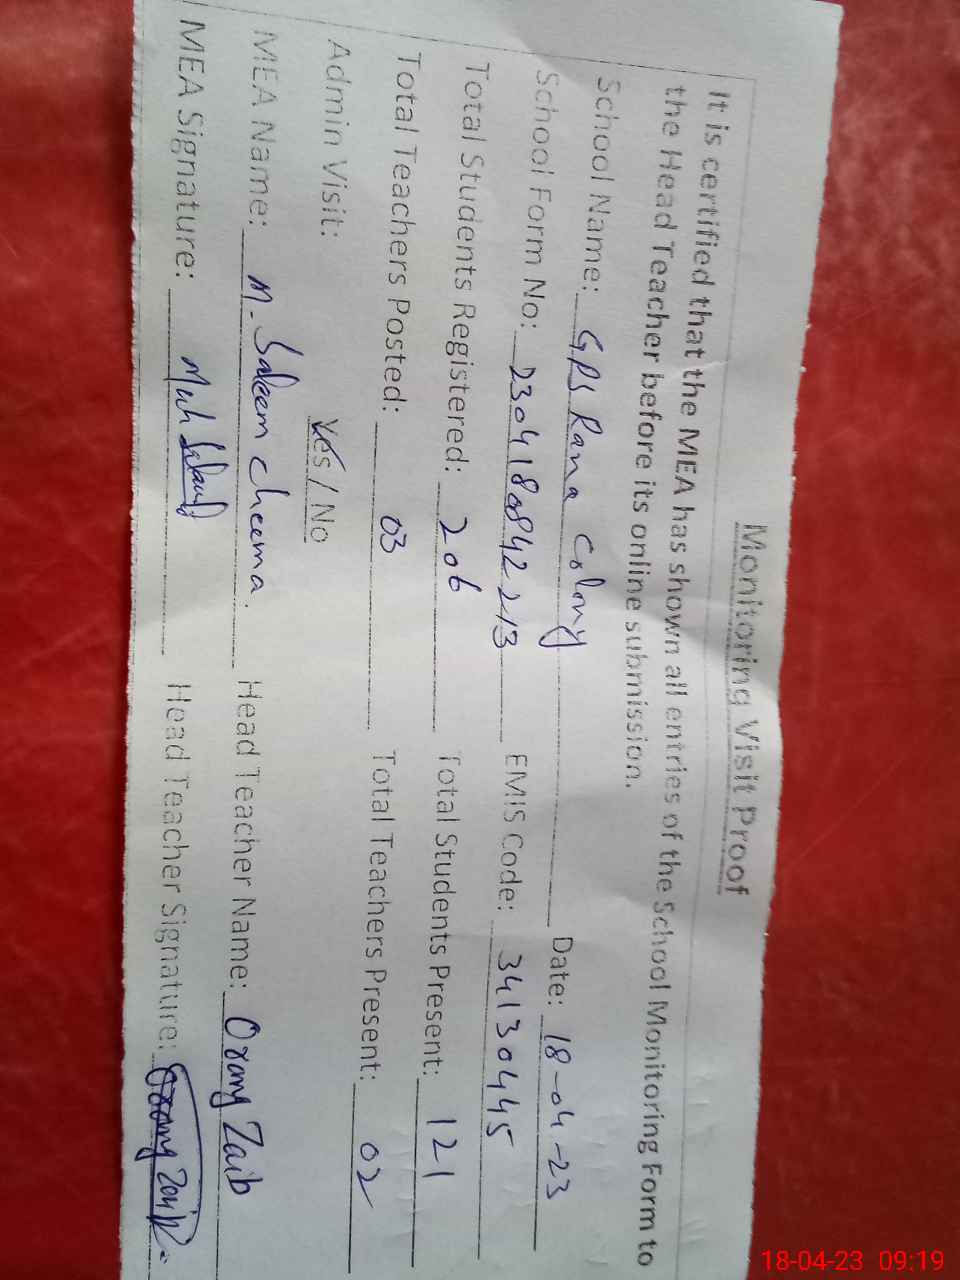 Monitoring Visit Proof
It is certified that the MEA has shown all entries of the School Monitoring Form to
the Head Teacher before its online submission.
School Name: GPS Rana Colony Date: 18-04-23
School Form No: 2304180842213 EMIS Code: 34130445
Total Students Registered: 206 Total Students Present: 121
Total Teachers Posted: 03 Total Teachers Present: 02
Admin Visit: Yes / No
MEA Name: M. Saleem Cheema. Head Teacher Name: Orang Zaib
MEA Signature: Muh Head Teacher Signature: Orang Zaib
18-04-23 09:19